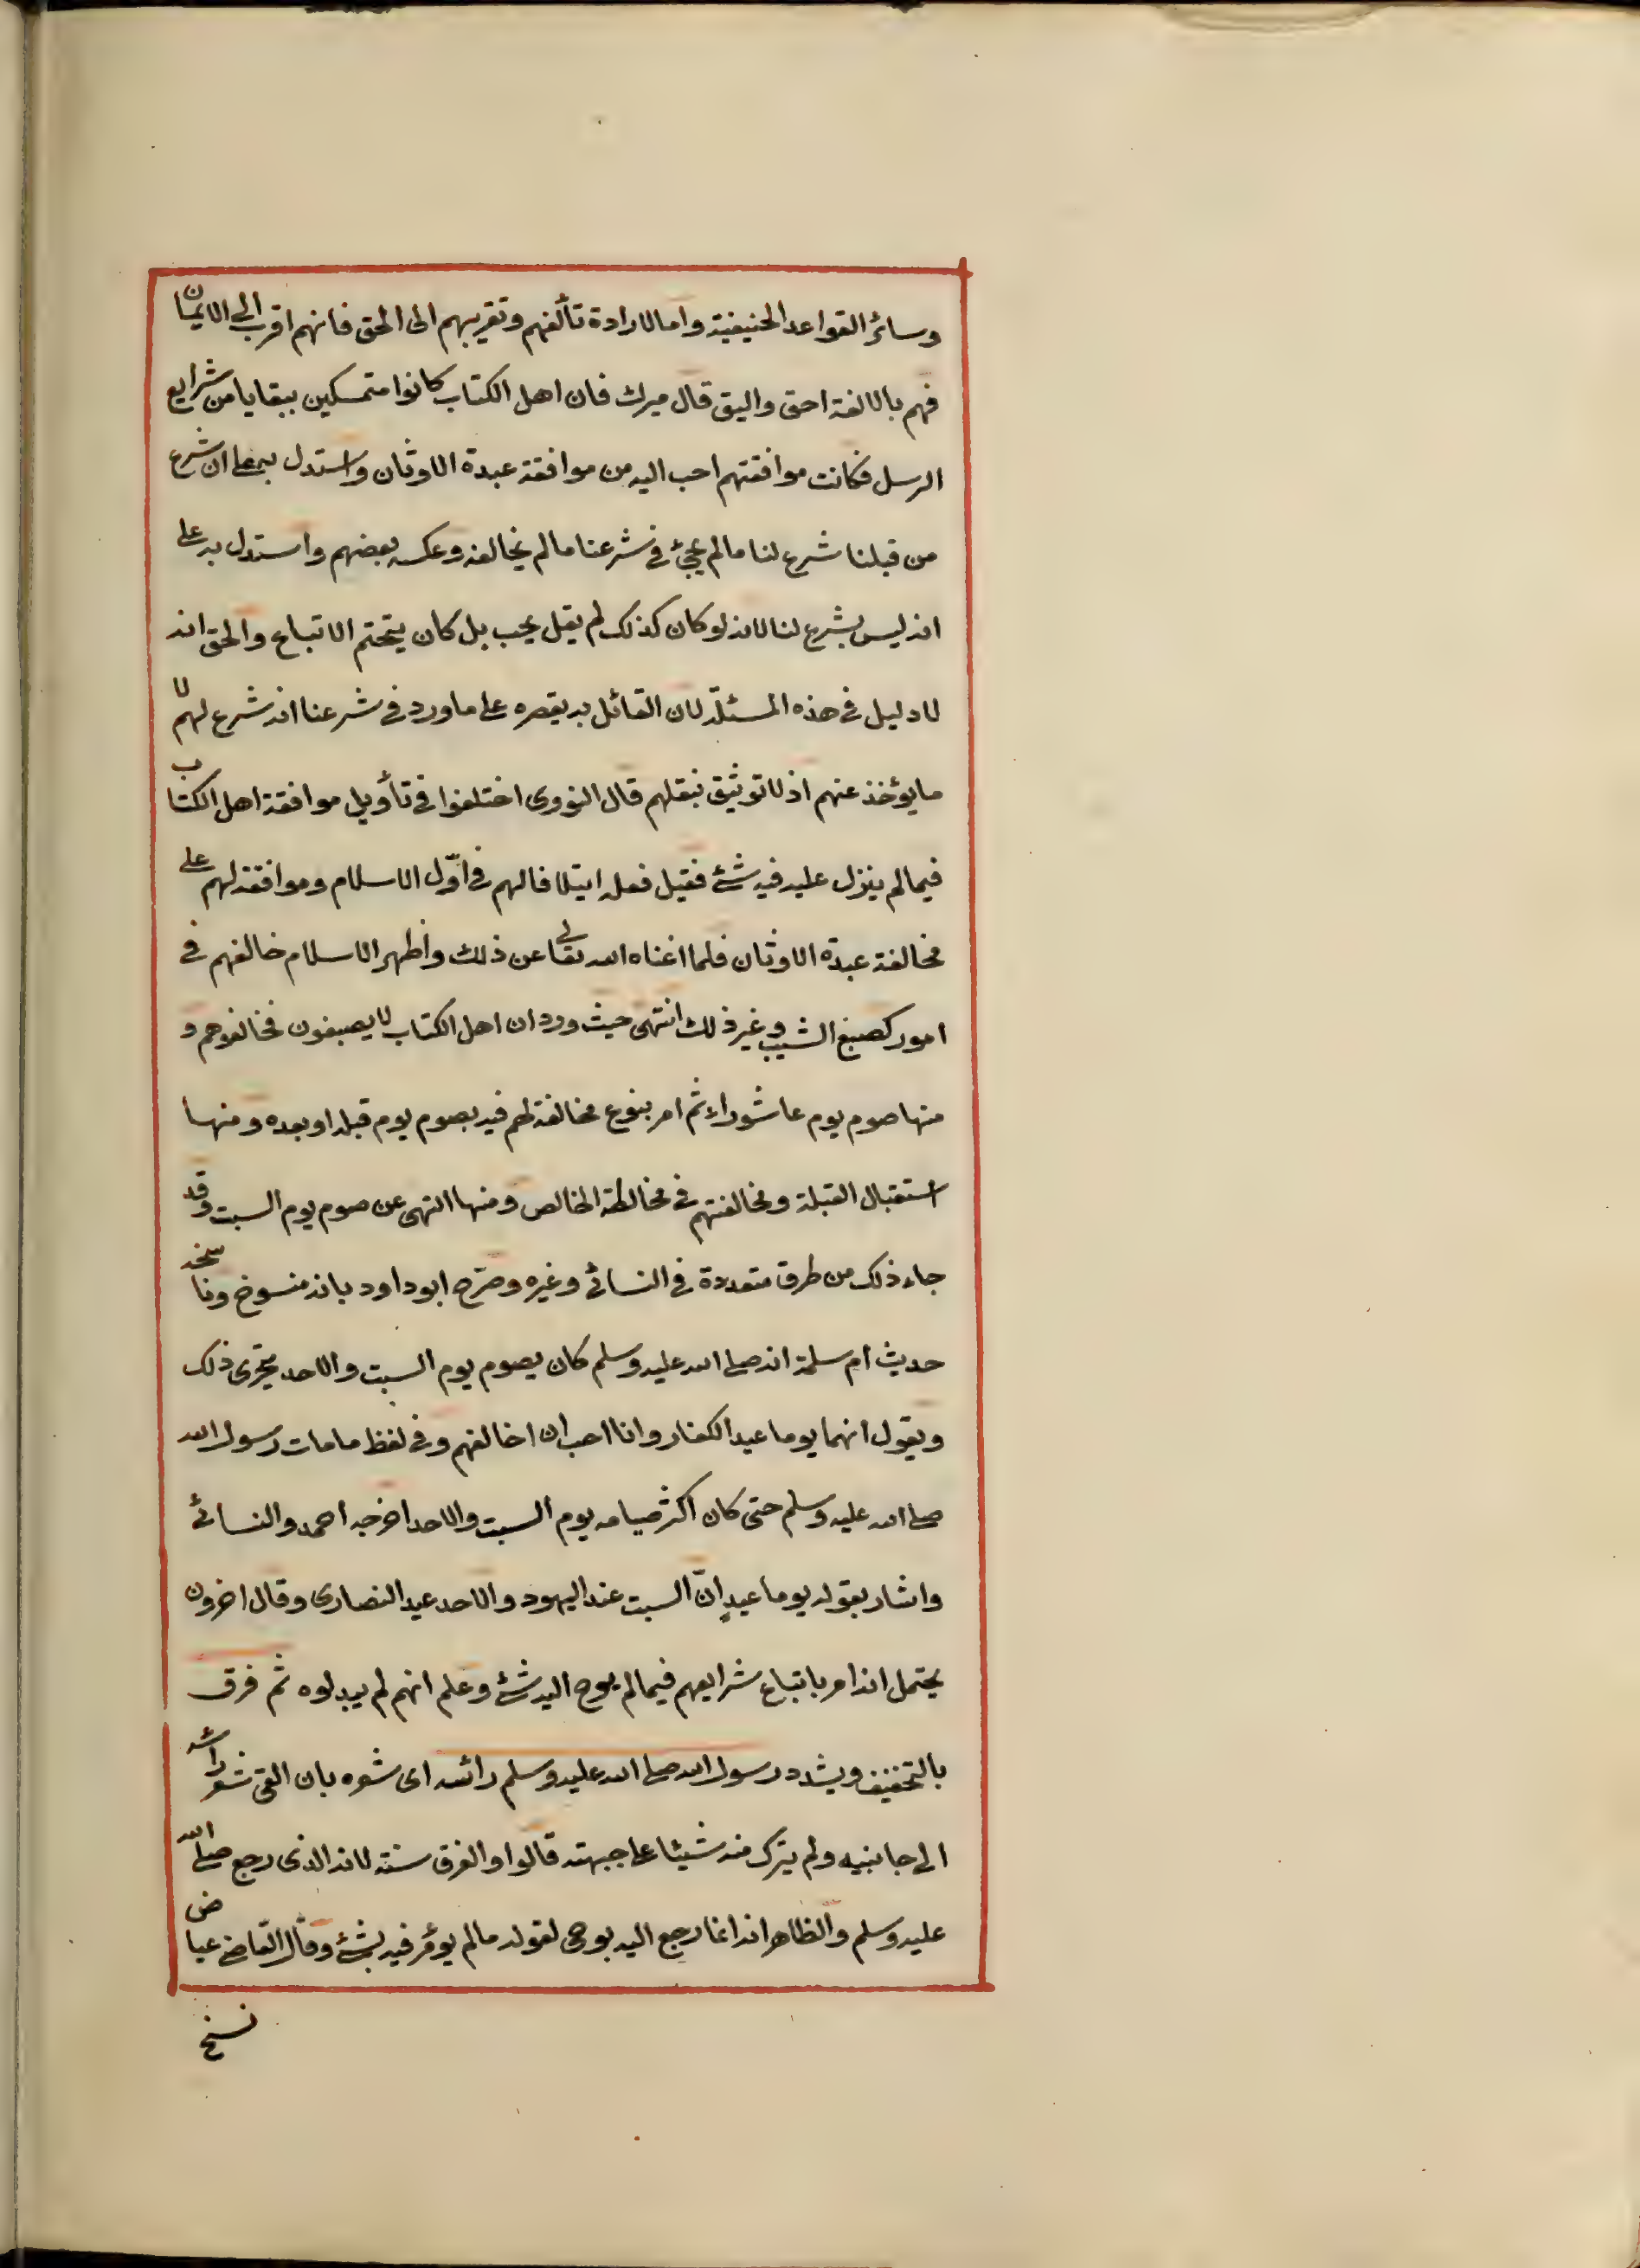 وسائر القواعد الحنيفية واما لارادة تألفهم وتقريبهم الى الحق فانهم اقرب الى الايمان
فهم بالالفة احق واليق قال ميرك فان اهل الكتاب كانوا متمسكين ببقايا من شرايع
الرسل فكانت موافقتهم احب اليه من موافقة عبدة الاوثان واستدل به على ان شرع
من قبلنا شرع لنا ما لم يجئ في شرعنا ما لم يخالفه وعكسه بعضهم واستدل به على
انه ليس بشرع لنا لانه لو كان كذلك لم يقل يحب بل كان يتحتم الاتباع والحق انه
لا دليل في هذه المسئلة لان القائل به يقصره على ما ورد في شرعنا انه شرع لهم لا
ما يؤخذ عنهم اذ لا توثيق بنقلهم قال النووى اختلفوا في تأويل موافقة اهل الكتاب
فيما لم ينزل عليه فيه شئ فقيل فعله ايتلافا لهم في اوّل الاسلام وموافقة لهم على
مخالفة عبدة الاوثان فلما اغناه الله تعالى عن ذلك واظهر الاسلام خالفهم في
امور كصبغ الشيب وغير ذلك انتهى حيث ورد ان اهل الكتاب لا يصبغون فخالفوهم و
منها صوم يوم عاشوراء ثم امر بنوع مخالفة لهم فيه بصوم يوم قبله او بعده ومنها
استقبال القبلة ومخالفتهم في مخالطة الحائض ومنها النهى عن صوم يوم السبت وقد
جاء ذلك من طرق متعددة في النسائى وغيره وصرّح ابو داود بانه منسوخ وناسخه
حديث ام سلمة انه صلى الله عليه وسلم كان يصوم يوم السبت والاحد يتحرى ذلك
ويقول انهما يوما عيد الكفار وانا احب ان اخالفهم وفي لفظ ما مات رسول الله
صلى الله عليه وسلم حتى كان اكثر صيامه يوم السبت والاحد اخرجه احمد والنسائى
واشار بقوله يوما عيدٍ انّ السبت عند اليهود والاحد عيد النصارى وقال اخرون
يحتمل انه امر باتباع شرايعهم فيما لم يوح اليه شئ وعلم انهم لم يبدلوه ثم فرق
بالتخفيف ويشدد رسول الله صلى الله عليه وسلم رائسه اى شعره بان القى شعر رائسه
الى جانبيه ولم يترك منه شيئا على جبهته قالوا والفرق سنة لانه الذى رجع صلى الله
عليه وسلم والظاهر انه انما رجع اليه بوحى لقوله ما لم يؤمر فيه بشئ وقال القاضى عياض
نسخ